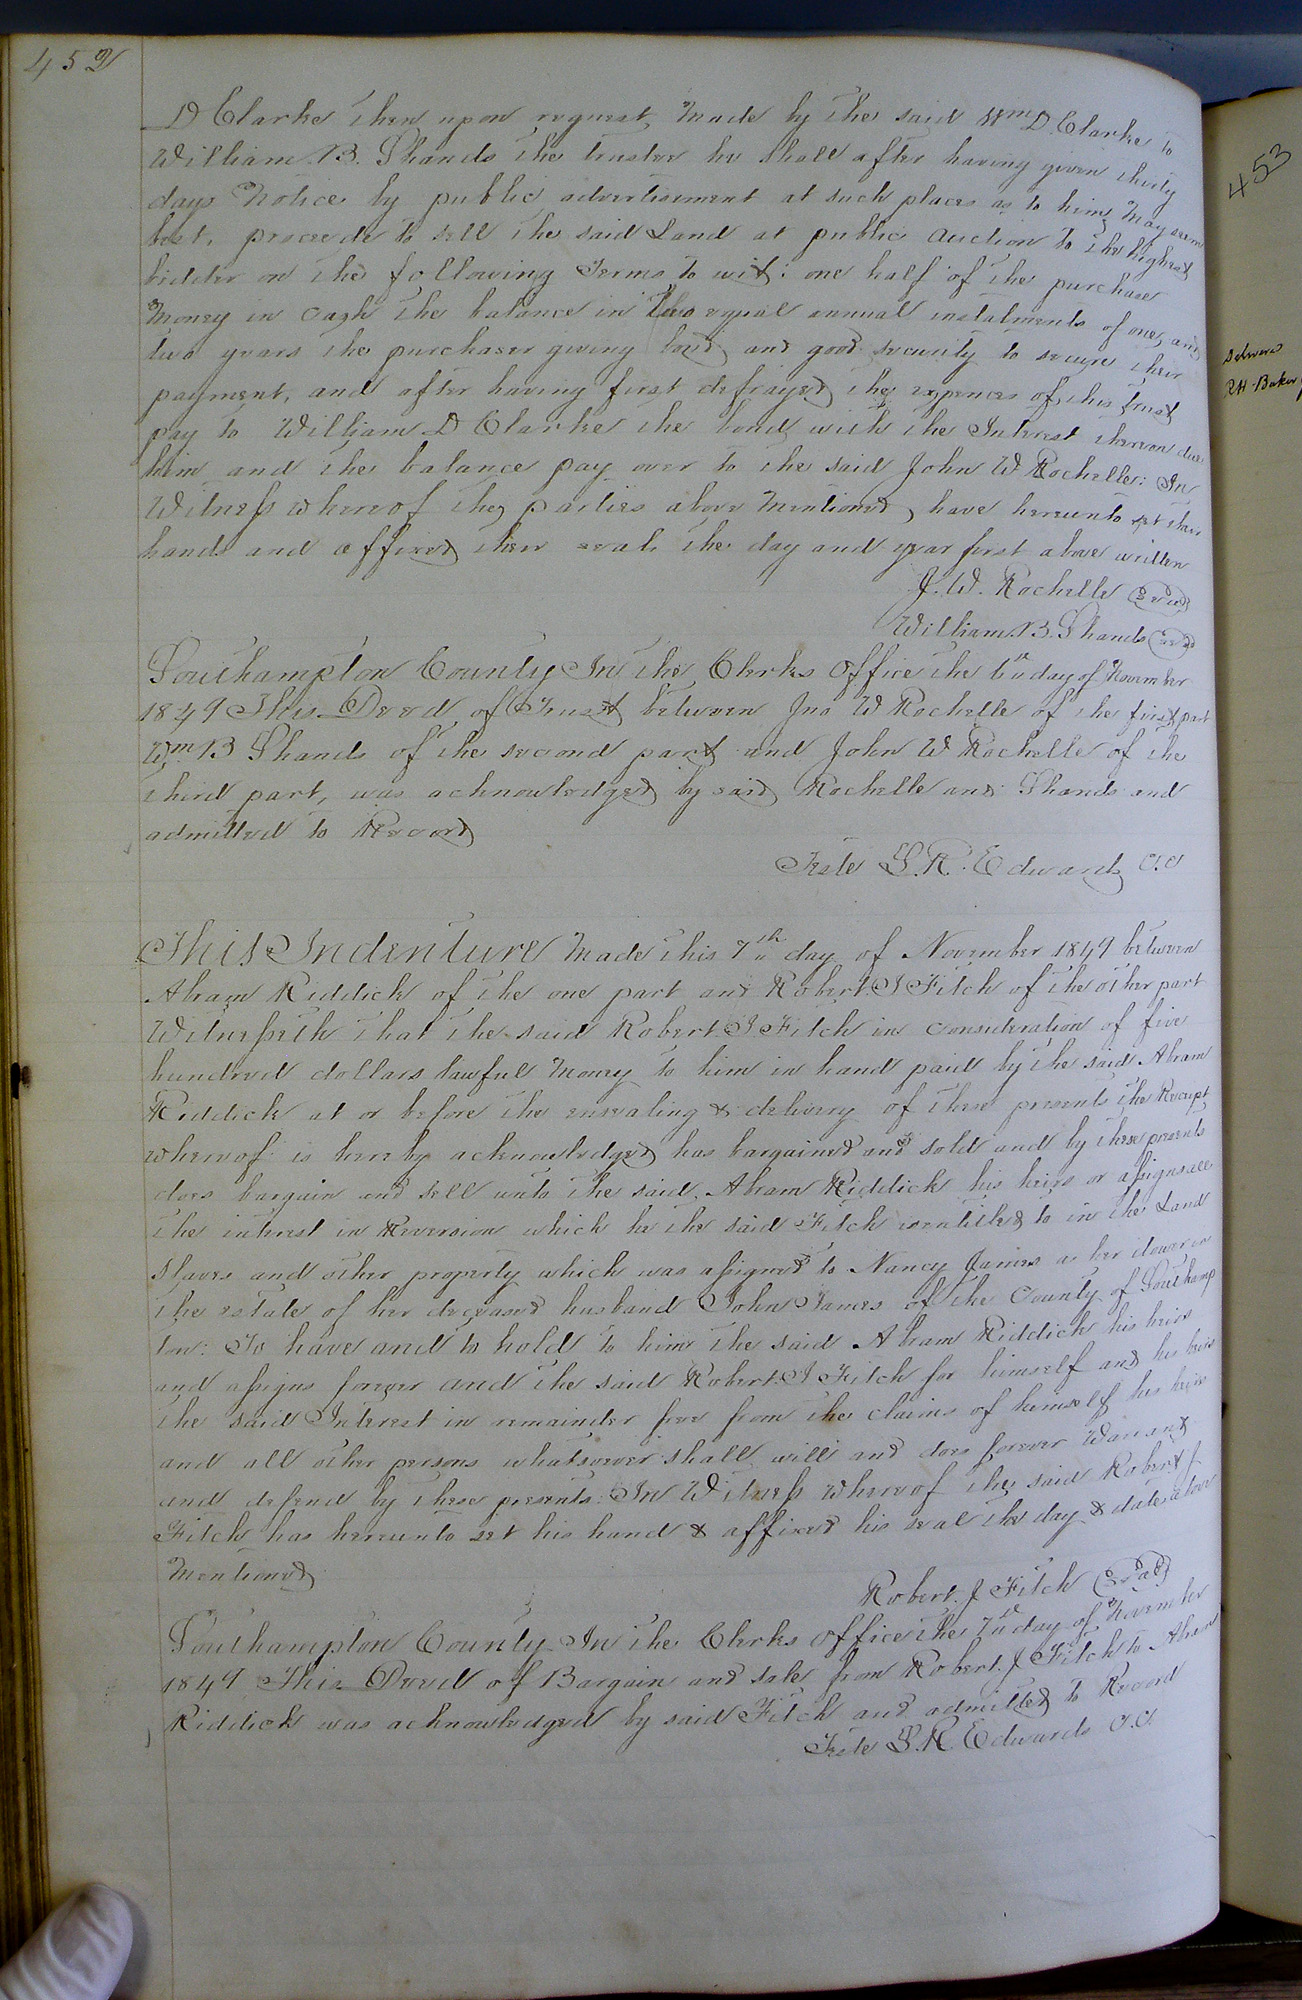 452
D Clarke then upon request made by the said Wm D. Clarke to
William B. Shands the trustee he shall after having given thirty
days notice by public advertisement at such places as to him may seem
best, procede to sell the said Land at public auction to the highest
bidder on the following terms to wit: one half of the purchase
money in cash the balance in two equal annual instalments of one, and
two years the purchaser giving bond and good security to secure their
payment, and after having first defrayed the expences of this trust
pay to William D Clarke the bond with the Interest thereon due
him and the balance pay over to the said John W Rochelle: In
Witness whereof the parties above mentioned, have hereunto set their
hands and affixed their seals the day and year first above written
J. W. Rochelle Seal
William B. Shands Seal
Southampton County In the Clerks Office the 6th day of November
1849 This Deed of Trust between Jno W Rochelle of the first part
Wm B Shands of the second part and John W Rochelle of the
third part, was acknowledged by said Rochelle and Shands and
admitted to Record
Teste L. R. Edwards C.C
This Indenture made this 7th day of November 1849 between
Abram Riddick of the one part and Robert J Fitch of the other part
Witnesseth that the said Robert J Fitch in consideration of five
hundred dollars lawful money to him in hand paid by the said Abram
Riddick at or before the ensealing & delivery of these presents the Receipt
whereof is hereby acknowledged has bargained and sold and by these presents
does bargain and sell unto the said Abram Riddick his heirs or assigns all
the interest in Reversion which he the said Fitch is entitled to in the Land
Slaves and other property which was assigned to Nancy James as her dower in
the estate of her deceased husband John James of the County of Southamp
ton: To have and to hold to him the said Abram Riddick his heirs
and assigns forever and the said Robert J Fitch for himself and his heirs
the said Interest in remainder free from the claims of himself his heirs
and all other persons whatsoever shall will and does forever Warrant
and defend by these presents: In Witness whereof the said Robert J
Fitch has hereunto set his hand & affixed his seal the day & date above
mentioned
Robert J Fitch Seal
Southampton County In the Clerks office the 7th day of November
1849 This Deed of Bargain and sale from Robert J Fitch to Abram
Riddick was acknowledged by said Fitch and admitted to Record
Teste L. R. Edwards C.C.
453
Delivered
R H Baker